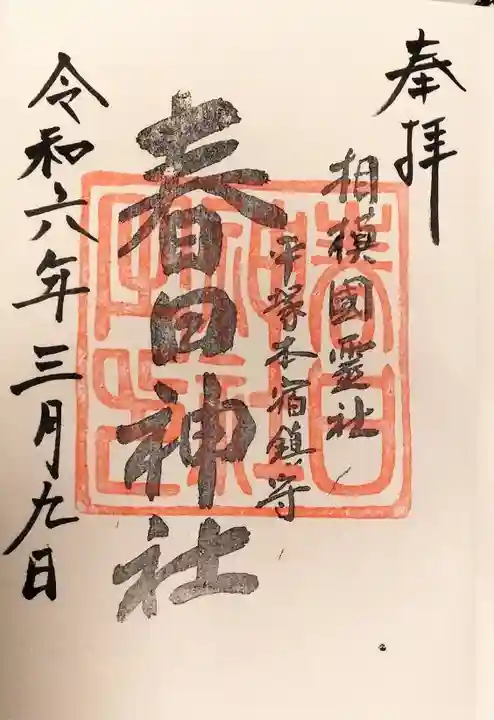 奉拝
相模國霊社
平塚本宿鎮守
春日神社
令和六年三月九日